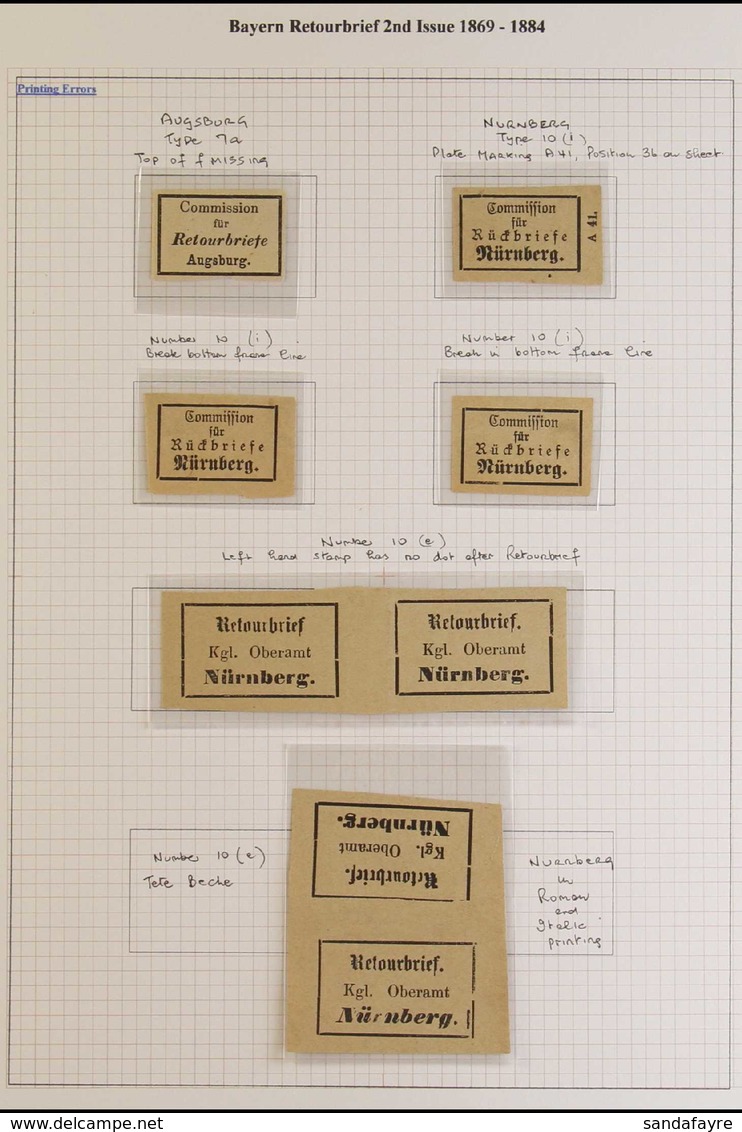 Bayern Retourbrief 2nd Issue 1869 - 1884
Printing Errors
AUGSBURG
Type 7a
Top of f MISSING
NURNBERG
Type 10 (i)
Plate MARKING A41, Position 36 on sheet
Commission
für
Retourbriefe
Augsburg.
Commiſſion
für
Rückbriefe
Nürnberg.
A 41.
Number 10 (i)
Break bottom frame line
Number 10 (i)
Break in bottom frame line
Commiſſion
für
Rückbriefe
Nürnberg.
Commiſſion
für
Rückbriefe
Nürnberg.
Number 10 (e)
Left hand stamp has no dot after Retourbrief
Retourbrief
Kgl. Oberamt
Nürnberg.
Retourbrief.
Kgl. Oberamt
Nürnberg.
Number 10 (e)
Tete Beche
Retourbrief.
Kgl. Oberamt
Nürnberg.
Nurnberg
in
Roman
and
Italic
printing
Retourbrief.
Kgl. Oberamt
Nürnberg.
delcampe.net
sandafayre